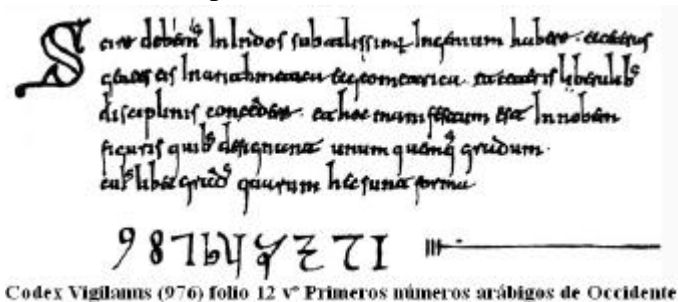 Scire debem' In Indos subtilissimum Ingenium habere. et ceteras
gentes eis In arithmetica et geometrica et ceteris liberalib'
disciplinis concedere. et hoc manifestum est In nobem
figuris quib' designant unum quemq' gradum.
cui'libet grad' quarum hec sunt forma
9 8 7 6
Codex Vigilanus (976) folio 12 vº Primeros números arábigos de Occidente